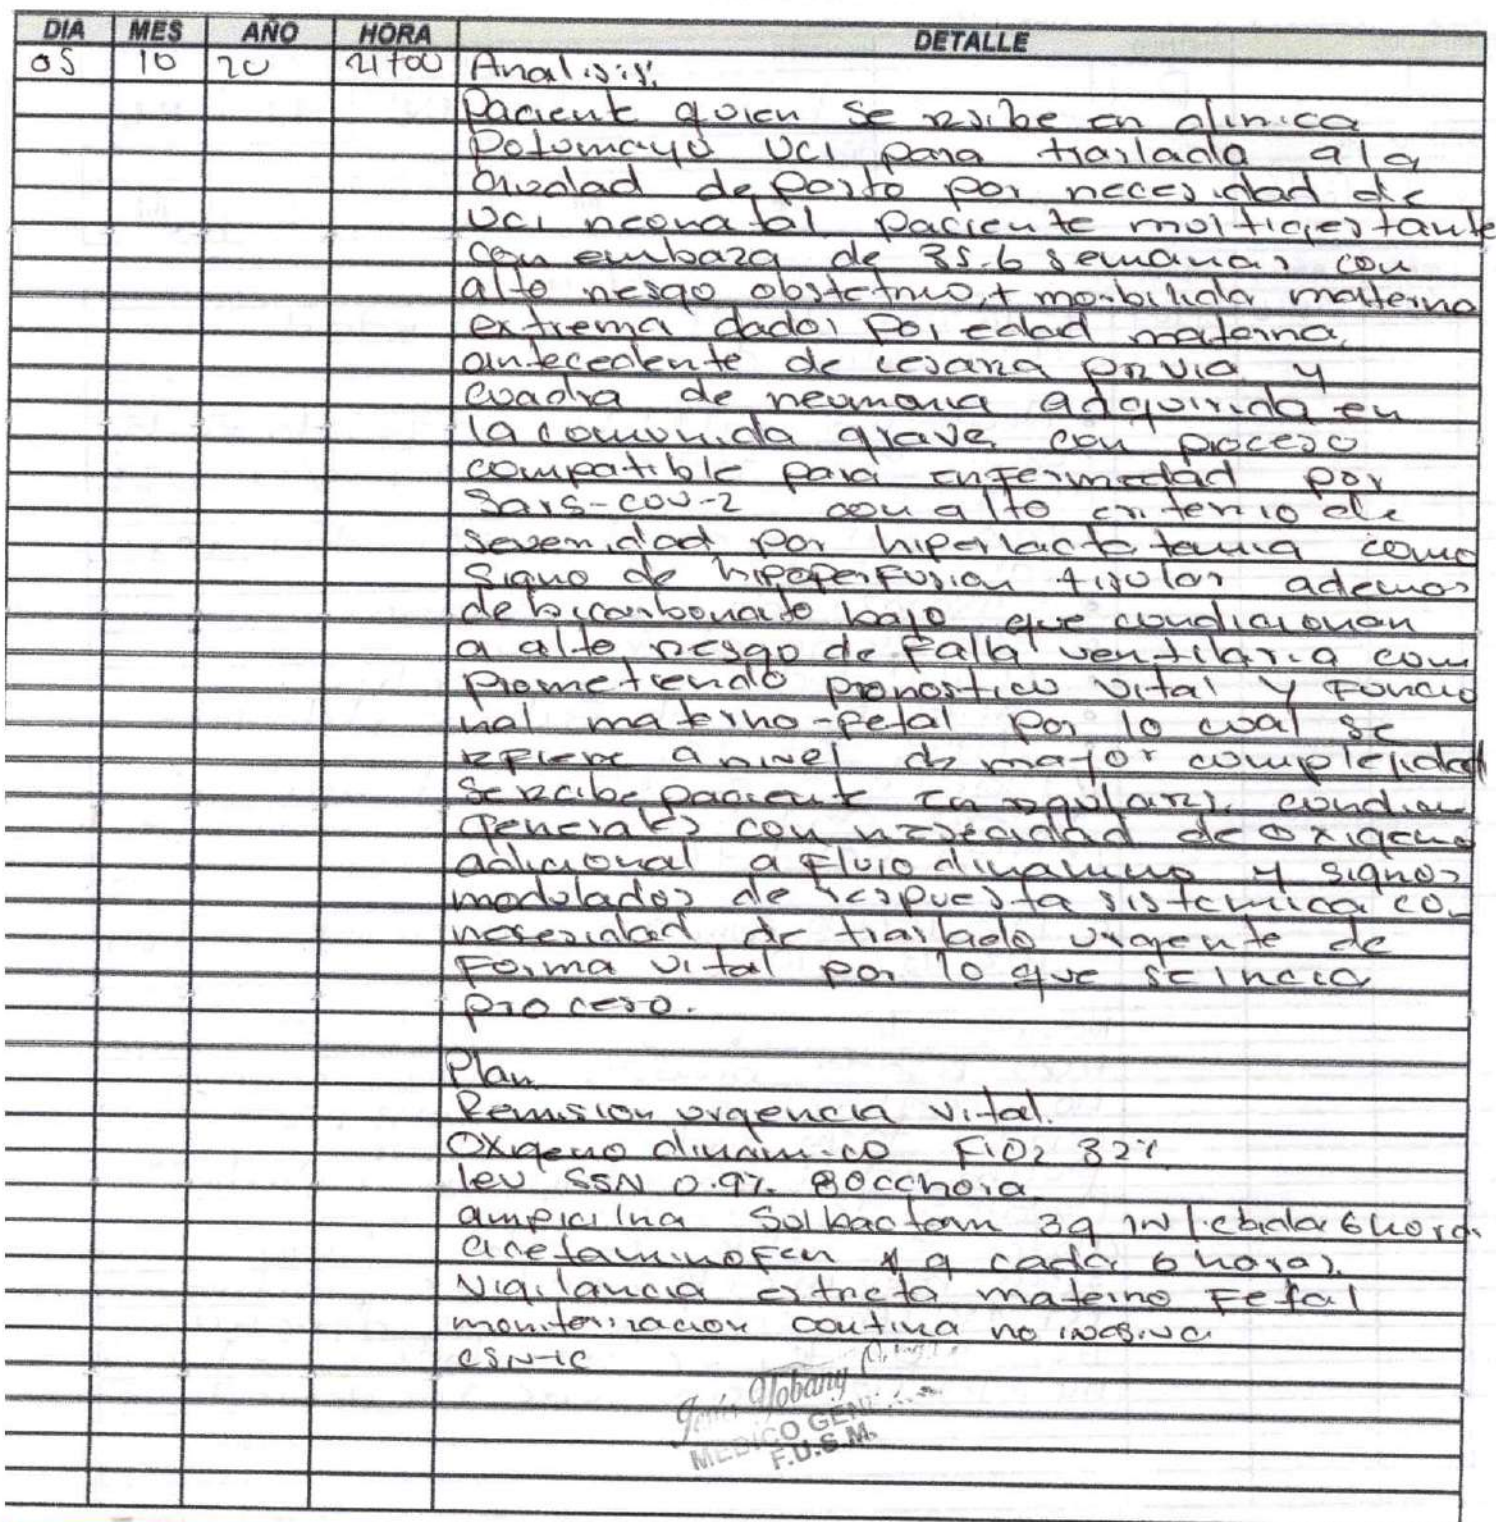 DIA MES AÑO HORA DETALLE
05 10 20 21+00 Analisis:
Paciente quien se resibe en clinica
Potumayo UCI para traslada a la
ciudad de Pasto por necesidad de
UCI neonatal paciente multigestante
con embaza de 35.6 semanas con
alto riesgo obstetrico + morbilida materna
extrema dados por edad materna,
antecedente de cesaria previa y
cuadra de neumonia adquirida en
la comunida grave con proceso
compatible para enfermedad por
Sars-cov-2 con alto criterio de
severidad por hiperlactatemia como
signo de hipoperfusion tisular ademas
de bicarbonato bajo que condicionan
a alto riesgo de falla ventilaria com
prometiendo pronostico vital y funcio
nal materno-fetal por lo cual se
refiere a nivel de mayor complejidad
se recibe paciente en regulares condicion
generales con nesecidad de oxigeno
adicional a flujo dinamico y signos
modulados de respuesta sistemica con
nesesidad de traslado urgente de
forma vital por lo que se inicia
proceso.
Plan
Remision urgencia vital.
Oxigeno dinamico FIO2 32%
lev SSN 0.9% 80cchora
ampicilna Sulbactam 3g IV cada 6 hora.
acetaminofen 1 g cada 6 horas.
Vigilancia estricta materno Fetal
monitorizacion continua no invasiva
CSN-IC
Jobany
MEDICO GEN
F.U.S.M.